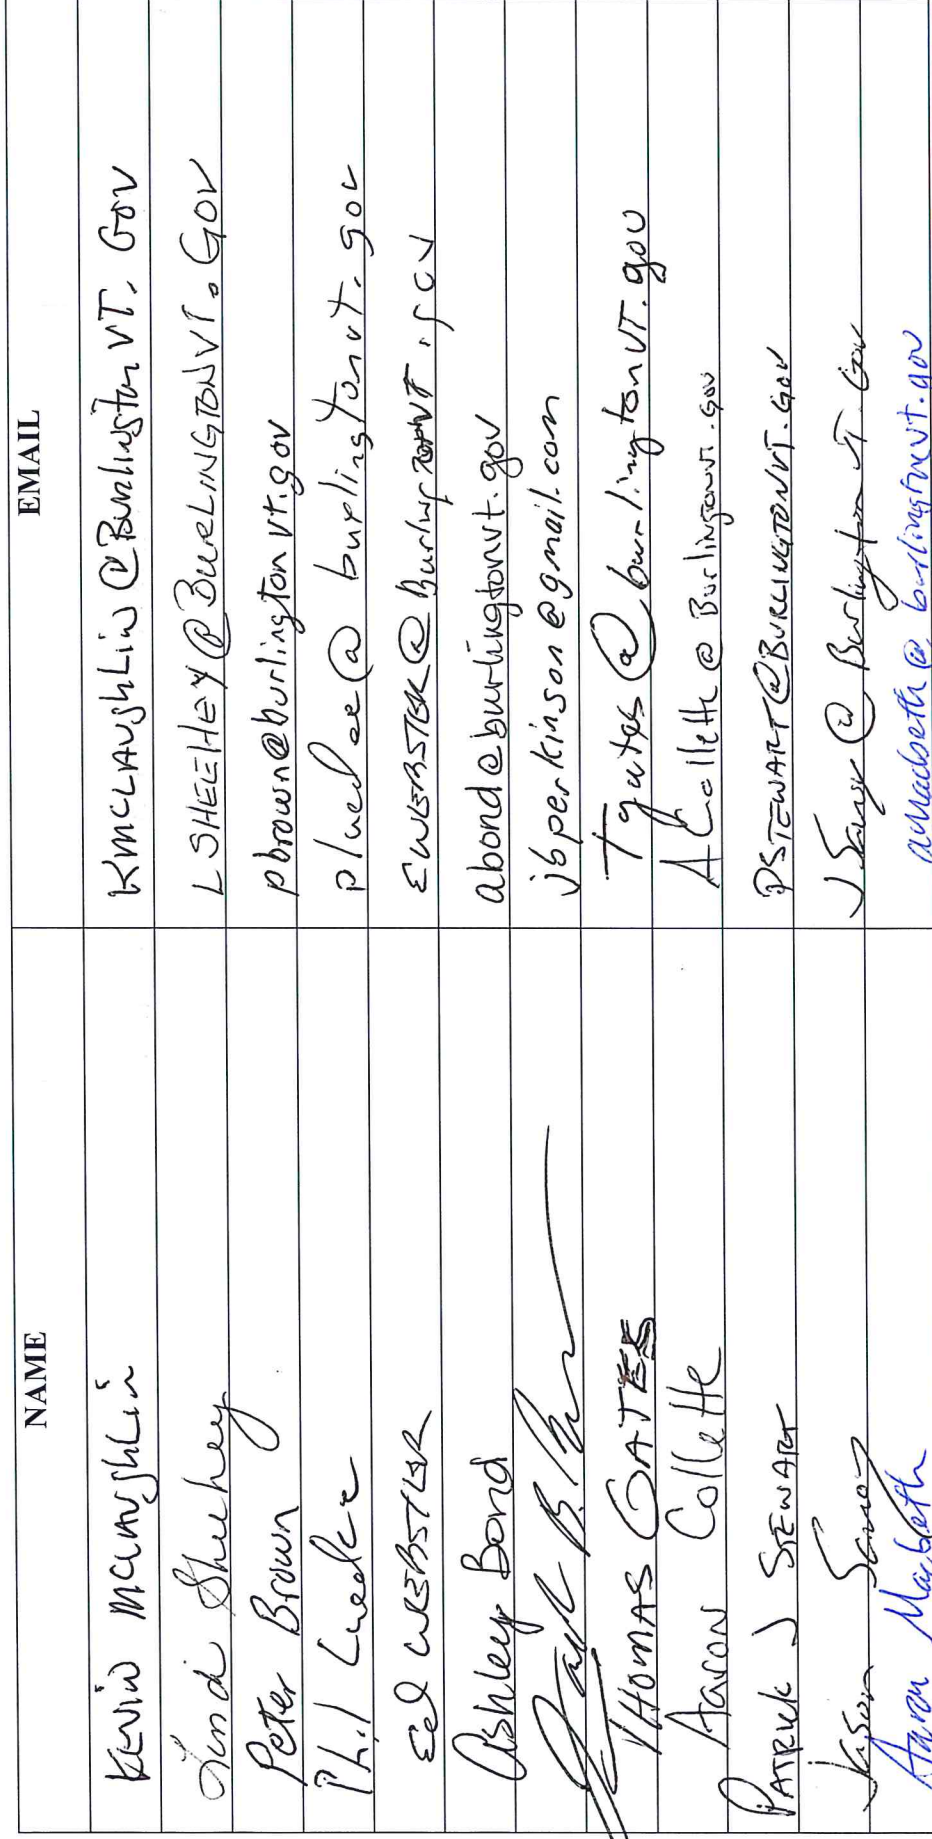 NAME EMAIL
Kevin McLaughlin KmcLaughLin@BurlingtonVT.Gov
Lindi Sheehey LSHEEHEY@BURLINGTONVT.GOV
Peter Brown pbrown@burlingtonvt.gov
Phil Luedee pluedee@burlingtonvt.gov
Ed WEBSTER EWEBSTER@Burlingtonvt.gov
Ashley Bond abond@burlingtonvt.gov
jbperkinson@gmail.com
THOMAS GATES Tgates@burlingtonVT.gov
Aaron Collette ACollette@Burlingtonvt.gov
PATRICK J STEWART PSTEWART@BURLINGTONVT.GOV
Jason @Burlington VT.Gov
Aaron Macbeth amacbeth@burlingtonvt.gov